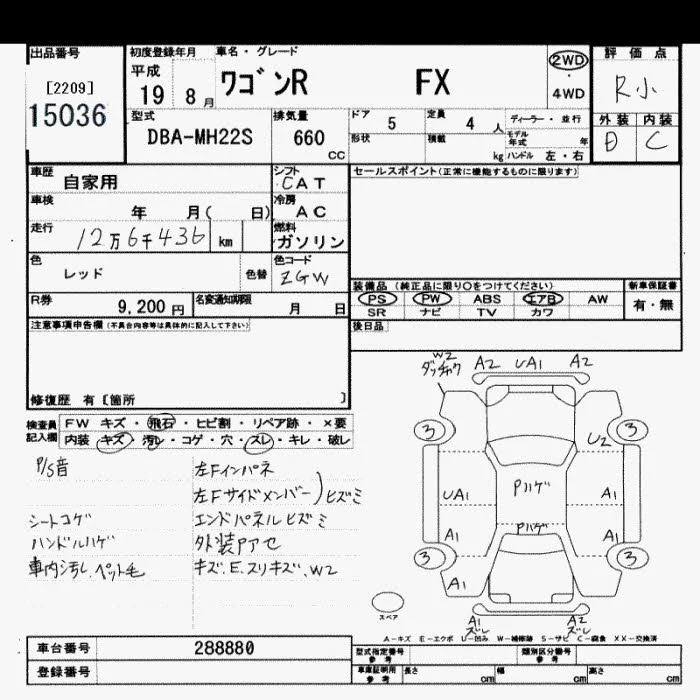 出品番号
[2209]
15036
初度登録年月
平成
19 8月
車名・グレード
ワゴンR FX
2WD
・
4WD
評価点
R小
外装 内装
D C
型式
DBA-MH22S
排気量
660
CC
ドア
5
定員
4 人
形状
積載
kg
ディーラー・並行
モデル年式 年
ハンドル 左・右
車歴
自家用
シフト
CAT
車検
年 月( 日)
冷房
AC
走行
12万6千436 km
燃料
ガソリン
色
レッド
色替
色コード
ZGW
R券
9,200円
名変通知期限
月 日
セールスポイント(正常に機能するものに限ります)
装備品(純正品に限り○をつけてください)
PS PW ABS エアB AW
SR ナビ TV カワ
新車保証書
有・無
後日品
注意事項申告欄(不具合内容等は具体的に記入して下さい)
修復歴 有[箇所 ]
検査員記入欄
FW キズ・飛石・ヒビ割・リペア跡・×要
内装 キズ・汚レ・コゲ・穴・スレ・キレ・破レ
P/S音
シートコゲ
ハンドルハゲ
車内汚し、ペット毛
左Fインパネ
左Fサイドメンバー)ヒズミ
エンドパネルヒズミ
外装Pアセ
キズ、E、スリキズ、W2
W2
A2 UA1 A2
3 3
U2
Pハゲ
UA1 A1
Pハゲ
A1 A1
3 3
A1
A1 A2
ズレ ズレ
スペア
A-キズ E-エクボ U-凹み W-補修跡 S-サビ C-腐食 XX-交換済
車台番号
288880
登録番号
型式指定番号
参考
類別区分番号
参考
車庫証明用
参考
長さ cm 幅 cm 高さ cm